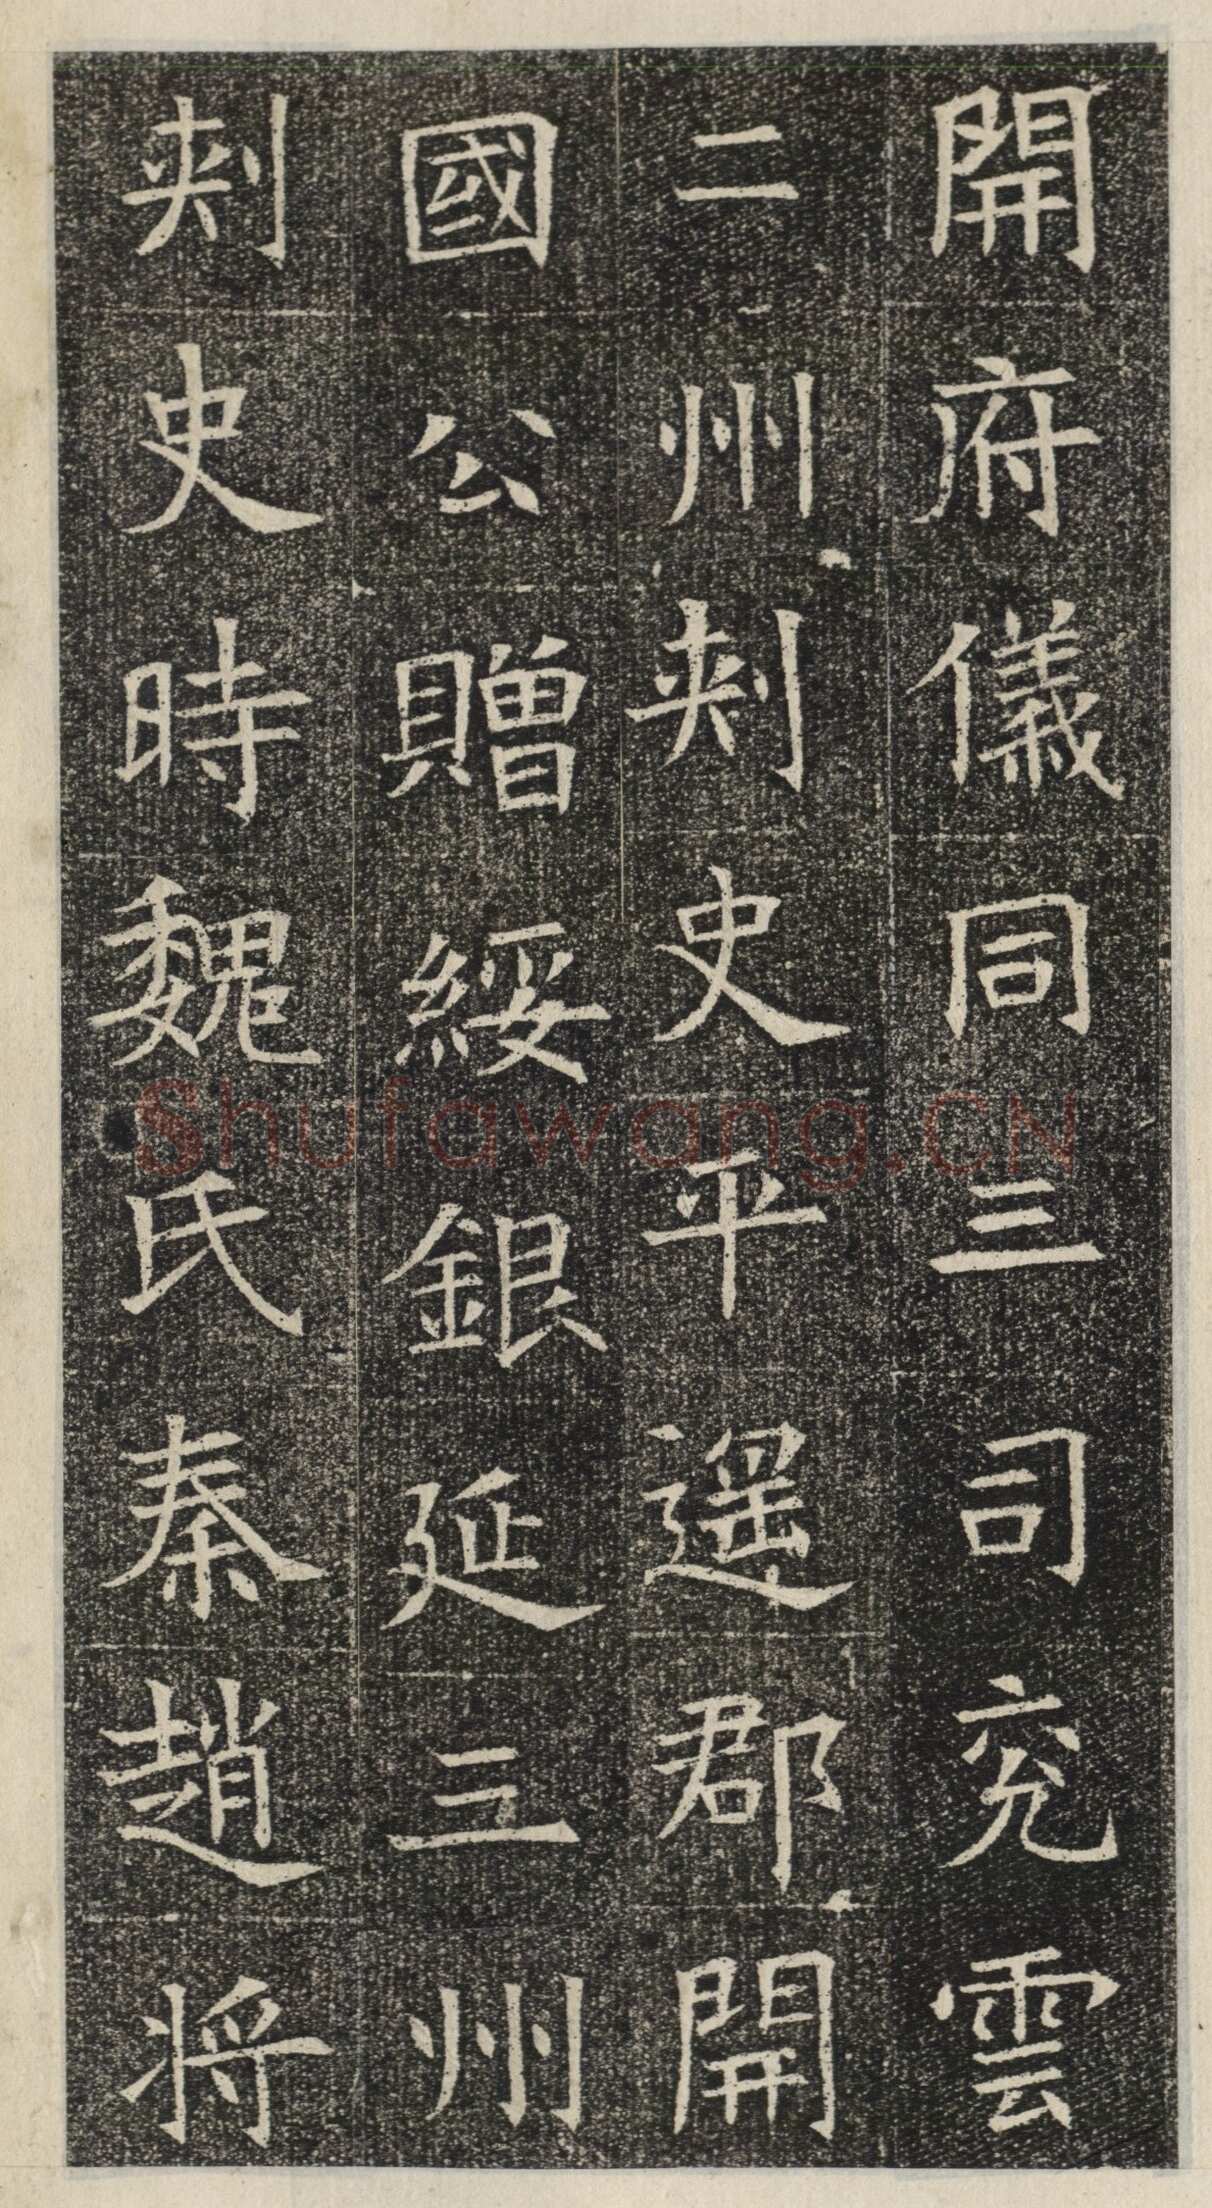 開府儀同三司兖雲
二州刺史平遥郡開
國公贈綏銀延三州
刺史時魏氏秦趙将
Shufawang.CN